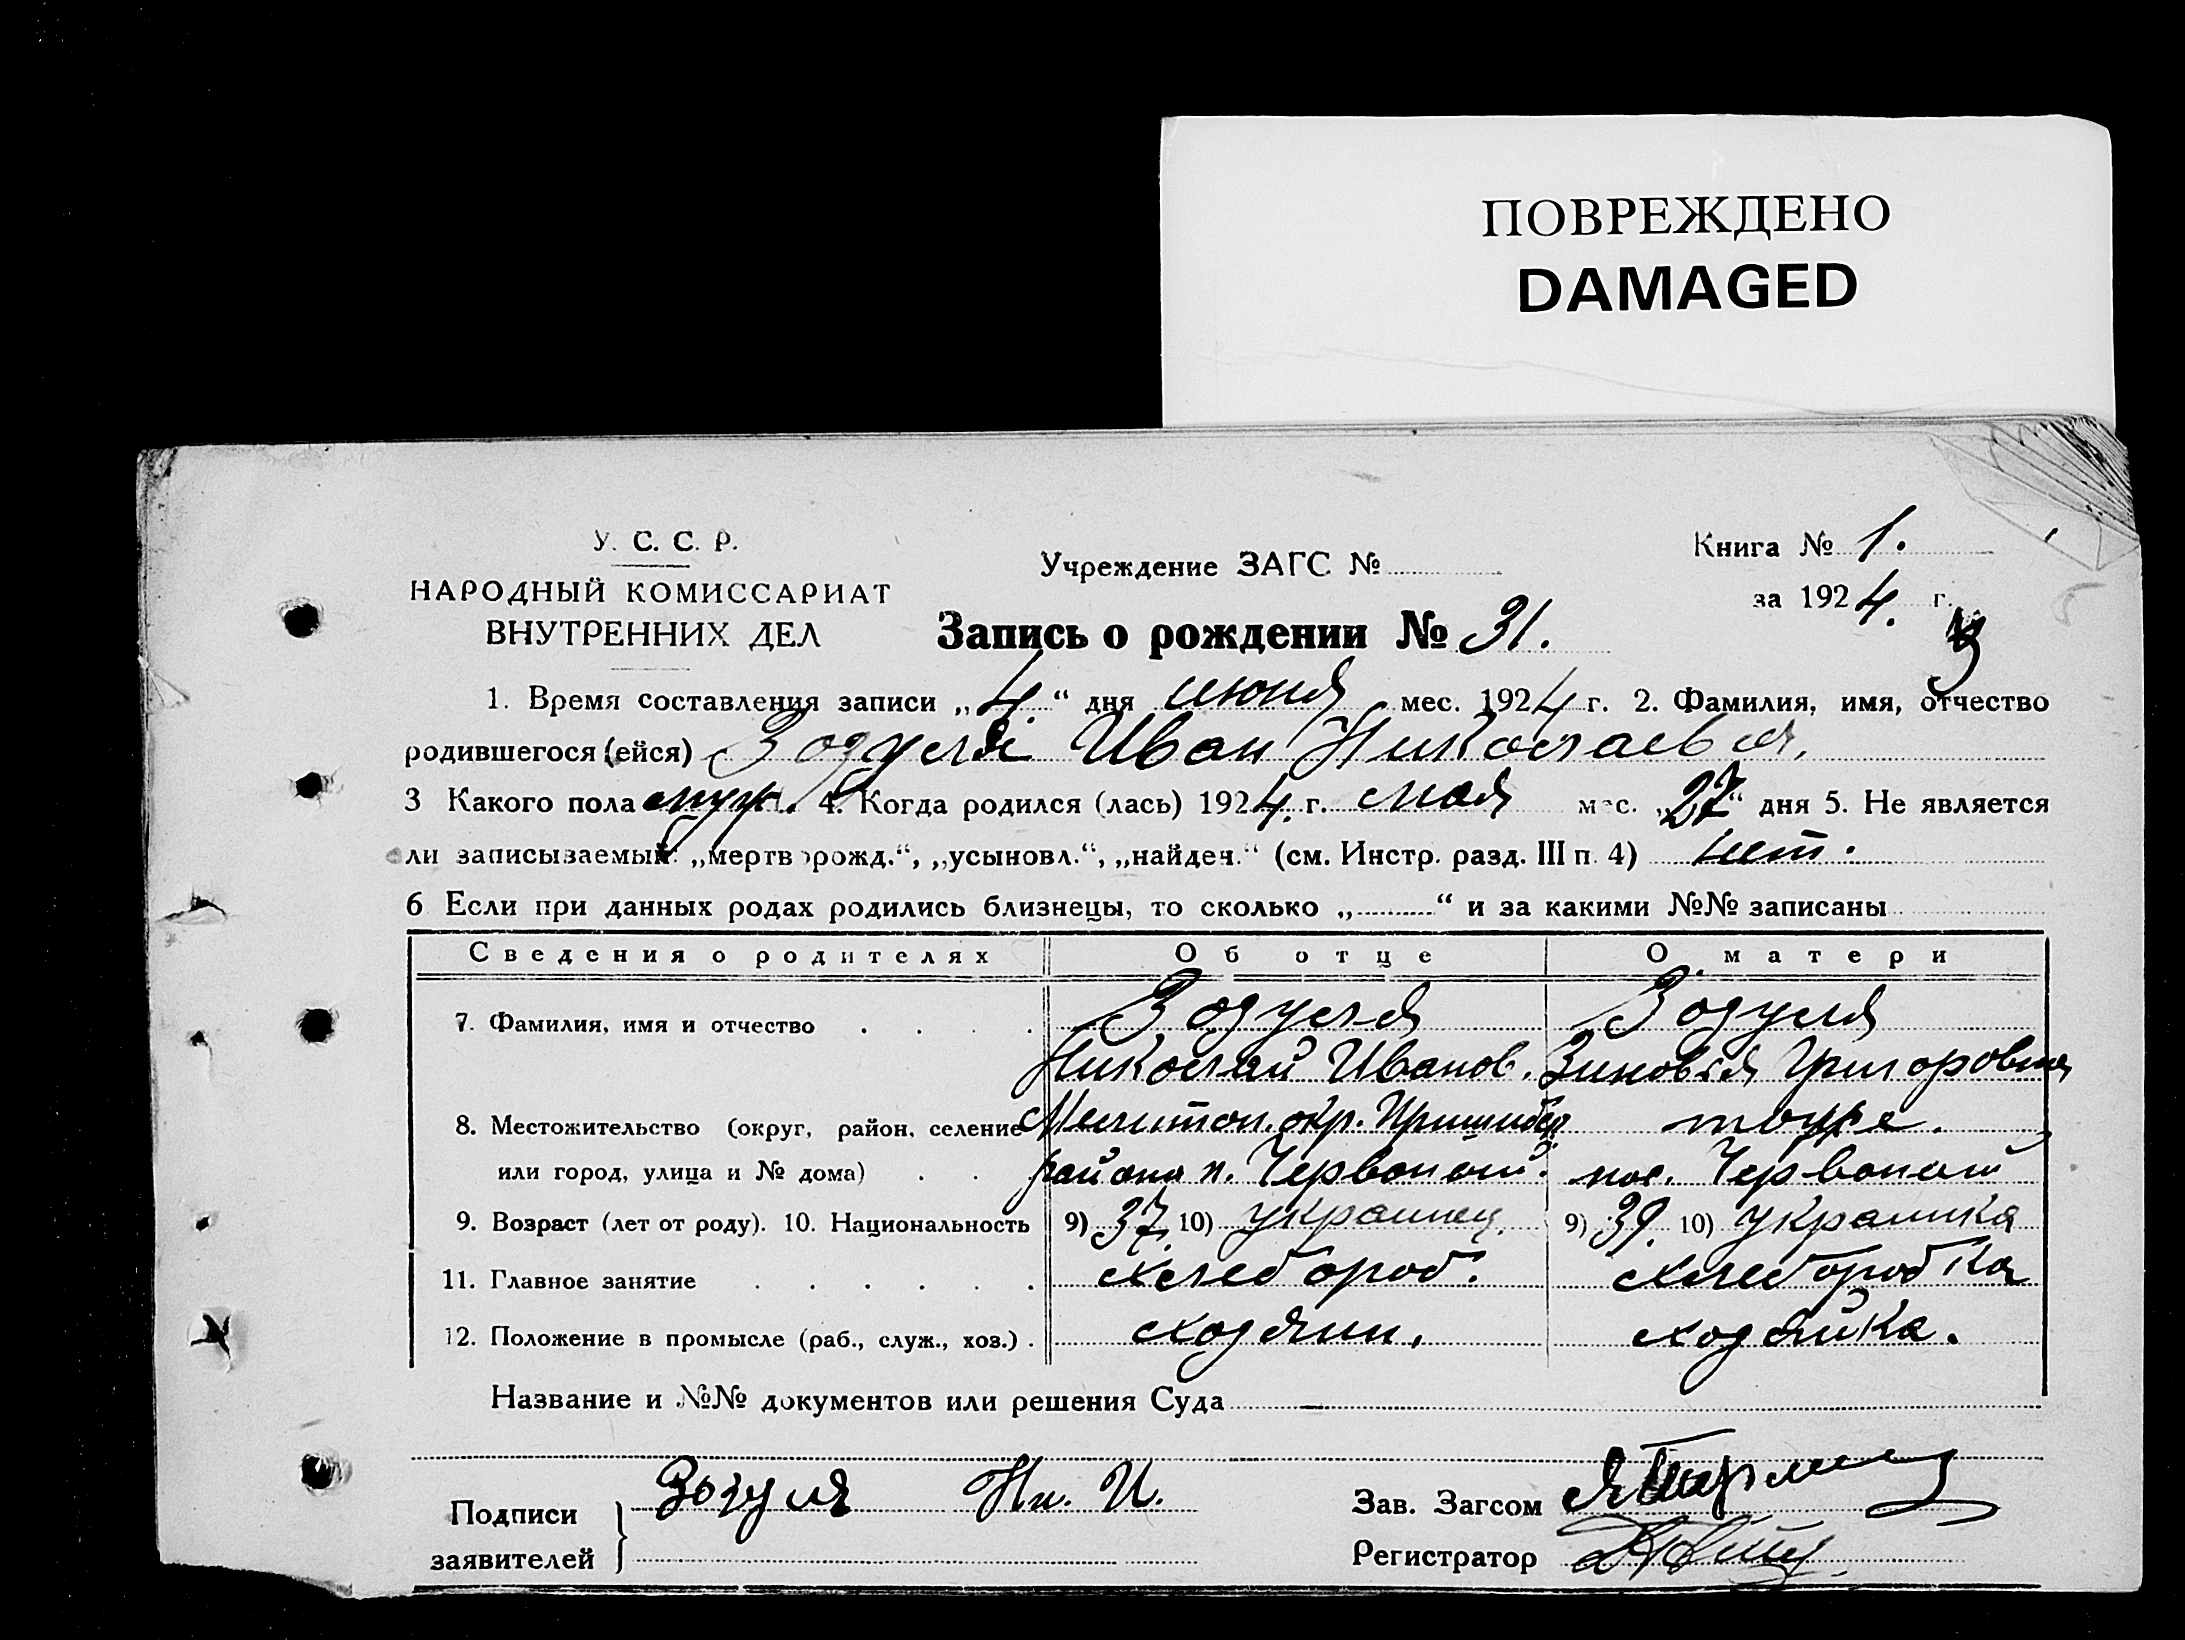 ПОВРЕЖДЕНО
DAMAGED
У. С. С. Р.
НАРОДНЫЙ КОМИССАРИАТ
ВНУТРЕННИХ ДЕЛ
Учреждение ЗАГС №
Книга № 1.
за 1924. г.
Запись о рождении № 31.
1. Время составления записи „4.“ дня июня мес. 1924 г. 2. Фамилия, имя, отчество
родившегося (ейся) Зозуля Иван Николаевич.
3 Какого пола муж. 4. Когда родился (лась) 1924. г. мая мес. „27“ дня 5. Не является
ли записываемый: „мертворожд.“, „усыновл.“, „найден.“ (см. Инстр. разд. III п. 4) нет.
6 Если при данных родах родились близнецы, то сколько „ “ и за какими №№ записаны
Сведения о родителях Об отце О матери
7. Фамилия, имя и отчество Зозуля Зозуля
Николай Иванов. Зиновия Григоровна
8. Местожительство (округ, район, селение Мелитоп. окр. Пришиб. тоже.
или город, улица и № дома) района п. Червоный. пос. Червоный
9. Возраст (лет от роду). 10. Национальность 9) 37. 10) украинец. 9) 39. 10) украинка
11. Главное занятие хлебороб. хлеборобка
12. Положение в промысле (раб., служ., хоз.) хозяин. хозяйка.
Название и №№ документов или решения Суда —
Подписи заявителей } Зозуля Ни. И.
Зав. Загсом
Регистратор